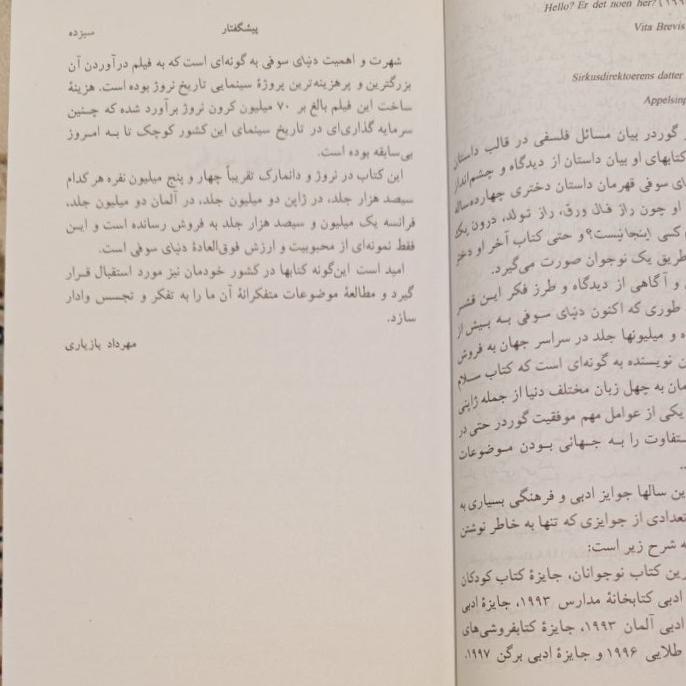 Hello? Er det noen her? (۱۹۹
Vita Brevis
Sirkusdirektoerens datter
Appelsinp
گوردر بیان مسائل فلسفی در قالب داستان
کتابهای او بیان داستان از دیدگاه و چشم‌انداز
ی سوفی قهرمان داستان دختری چهارده‌ساله
او چون راز فال ورق، راز تولد، درون یک
کسی اینجا نیست؟ و حتی کتاب آخر او دختر
طریق یک نوجوان صورت می‌گیرد.
و آگاهی از دیدگاه و طرز فکر این قشر
طوری که اکنون دنیای سوفی به بیش از
ه و میلیونها جلد در سراسر جهان به فروش
ن نویسنده به گونه‌ای است که کتاب سلام
مان به چهل زبان مختلف دنیا از جمله ژاپنی
یکی از عوامل مهم موفقیت گوردر حتی در
تفاوت را به جهانی بودن موضوعات
ین سالها جوایز ادبی و فرهنگی بسیاری به
تعدادی از جوایزی که تنها به خاطر نوشتن
ه شرح زیر است:
رین کتاب نوجوانان، جایزهٔ کتاب کودکان
ادبی کتابخانهٔ مدارس ۱۹۹۳، جایزهٔ ادبی
ادبی آلمان ۱۹۹۳، جایزهٔ کتابفروشی‌های
طلایی ۱۹۹۶ و جایزهٔ ادبی برگن ۱۹۹۷.
پیشگفتار سیزده
شهرت و اهمیت دنیای سوفی به گونه‌ای است که به فیلم درآوردن آن
بزرگترین و پرهزینه‌ترین پروژهٔ سینمایی تاریخ نروژ بوده است. هزینهٔ
ساخت این فیلم بالغ بر ۷۰ میلیون کرون نروژ برآورد شده که چنین
سرمایه گذاری‌ای در تاریخ سینمای این کشور کوچک تا به امروز
بی‌سابقه بوده است.
این کتاب در نروژ و دانمارک تقریباً چهار و پنج میلیون نفره هر کدام
سیصد هزار جلد، در ژاپن دو میلیون جلد، در آلمان دو میلیون جلد،
فرانسه یک میلیون و سیصد هزار جلد به فروش رسانده است و این
فقط نمونه‌ای از محبوبیت و ارزش فوق‌العادهٔ دنیای سوفی است.
امید است این‌گونه کتابها در کشور خودمان نیز مورد استقبال قرار
گیرد و مطالعهٔ موضوعات متفکرانهٔ آن ما را به تفکر و تجسس وادار
سازد.
مهرداد بازیاری